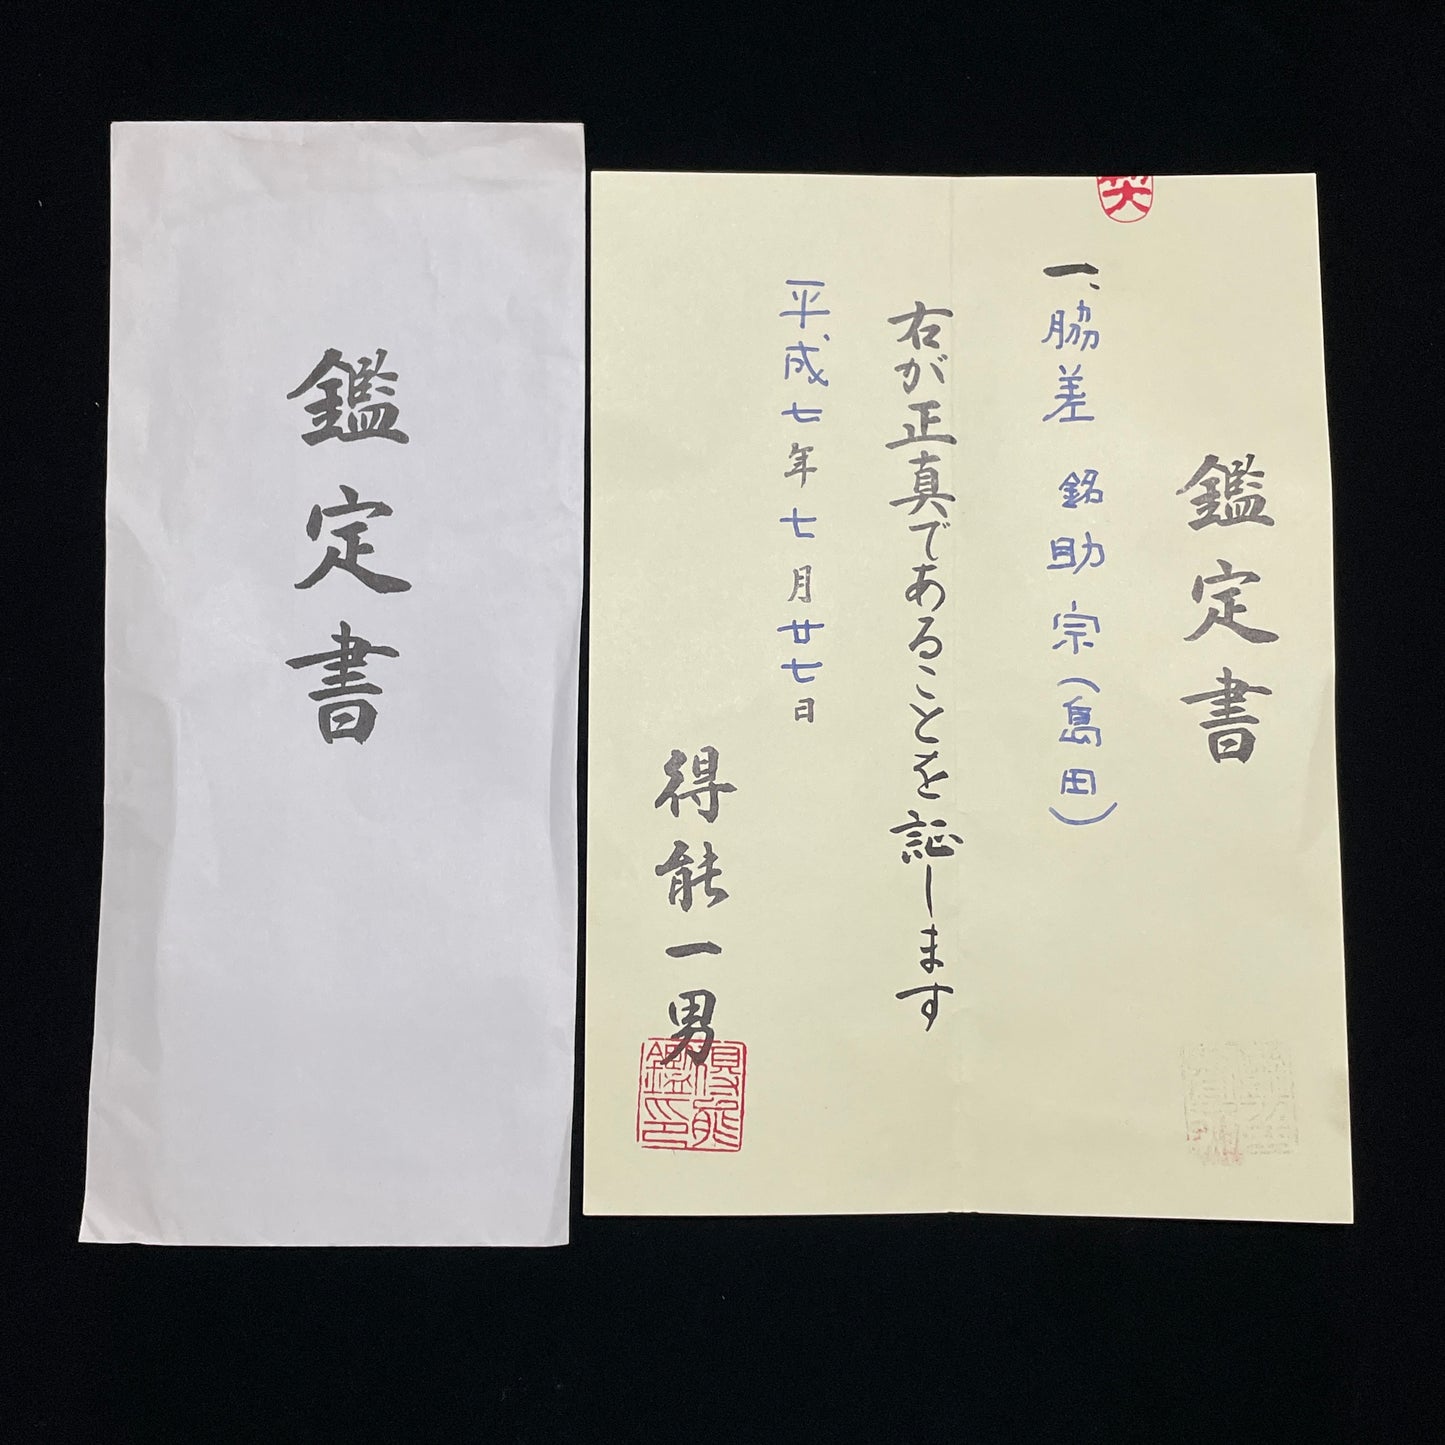 鑑定書
鑑定書
一、脇差 銘助宗(島田)
右が正真であることを証します
平成七年七月廿七日
得能一男
得能鑑印